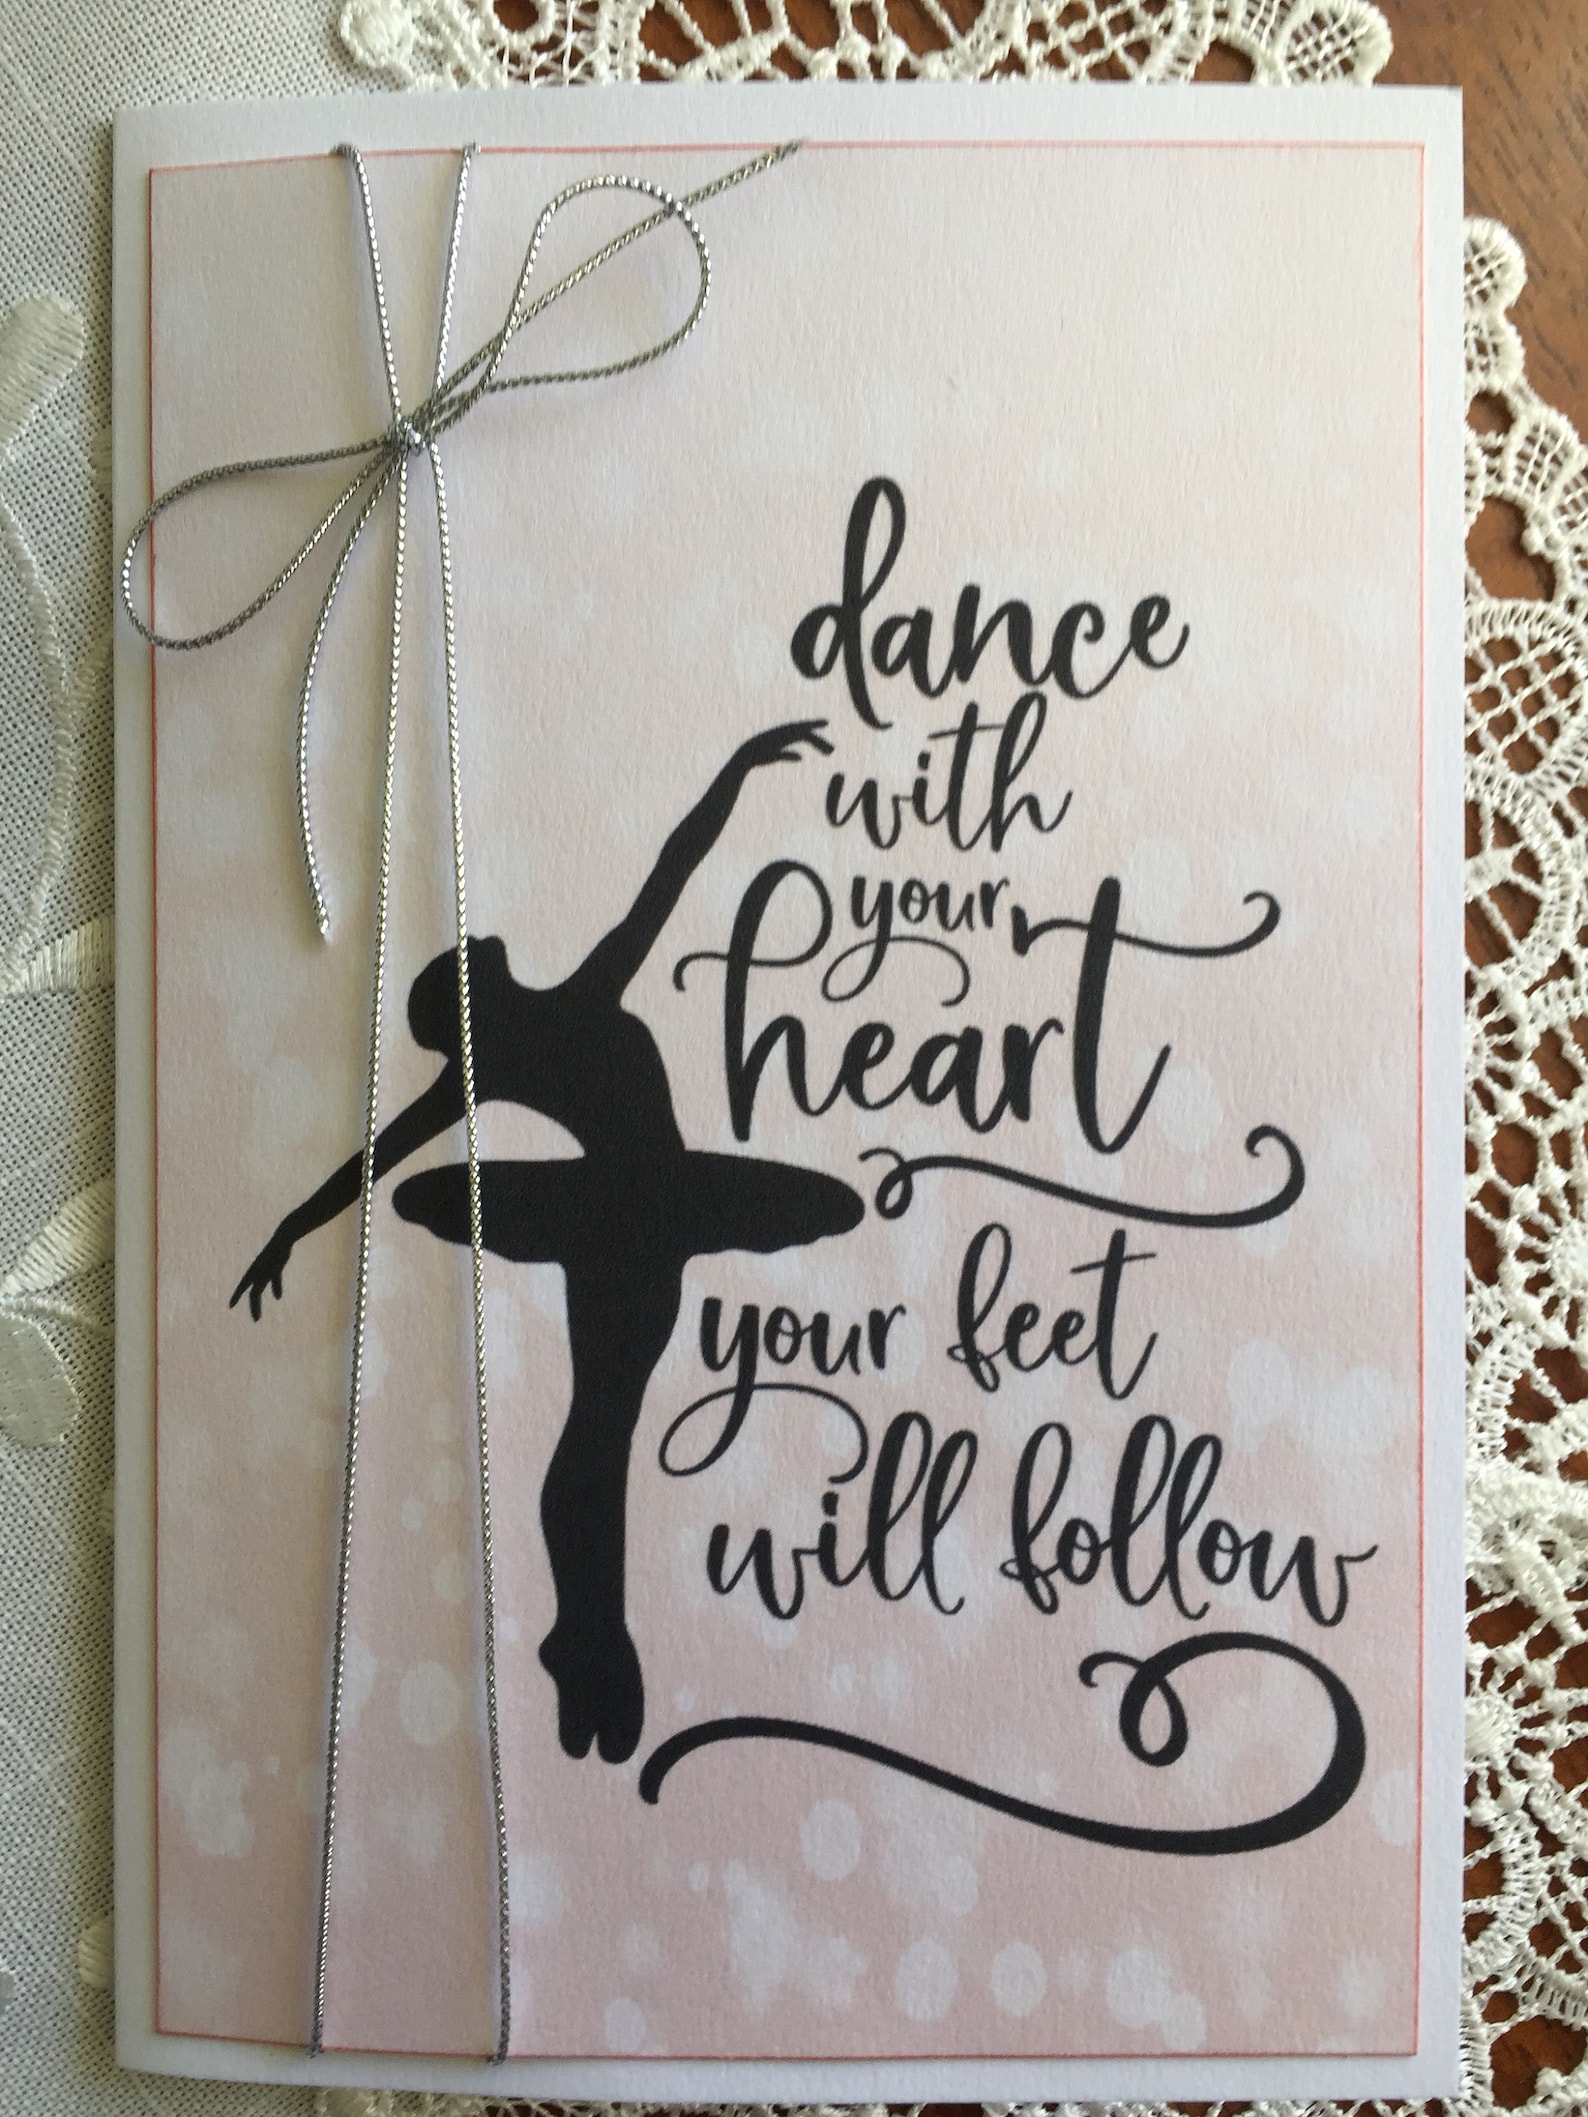 dance
with
your
heart
your feet
will follow